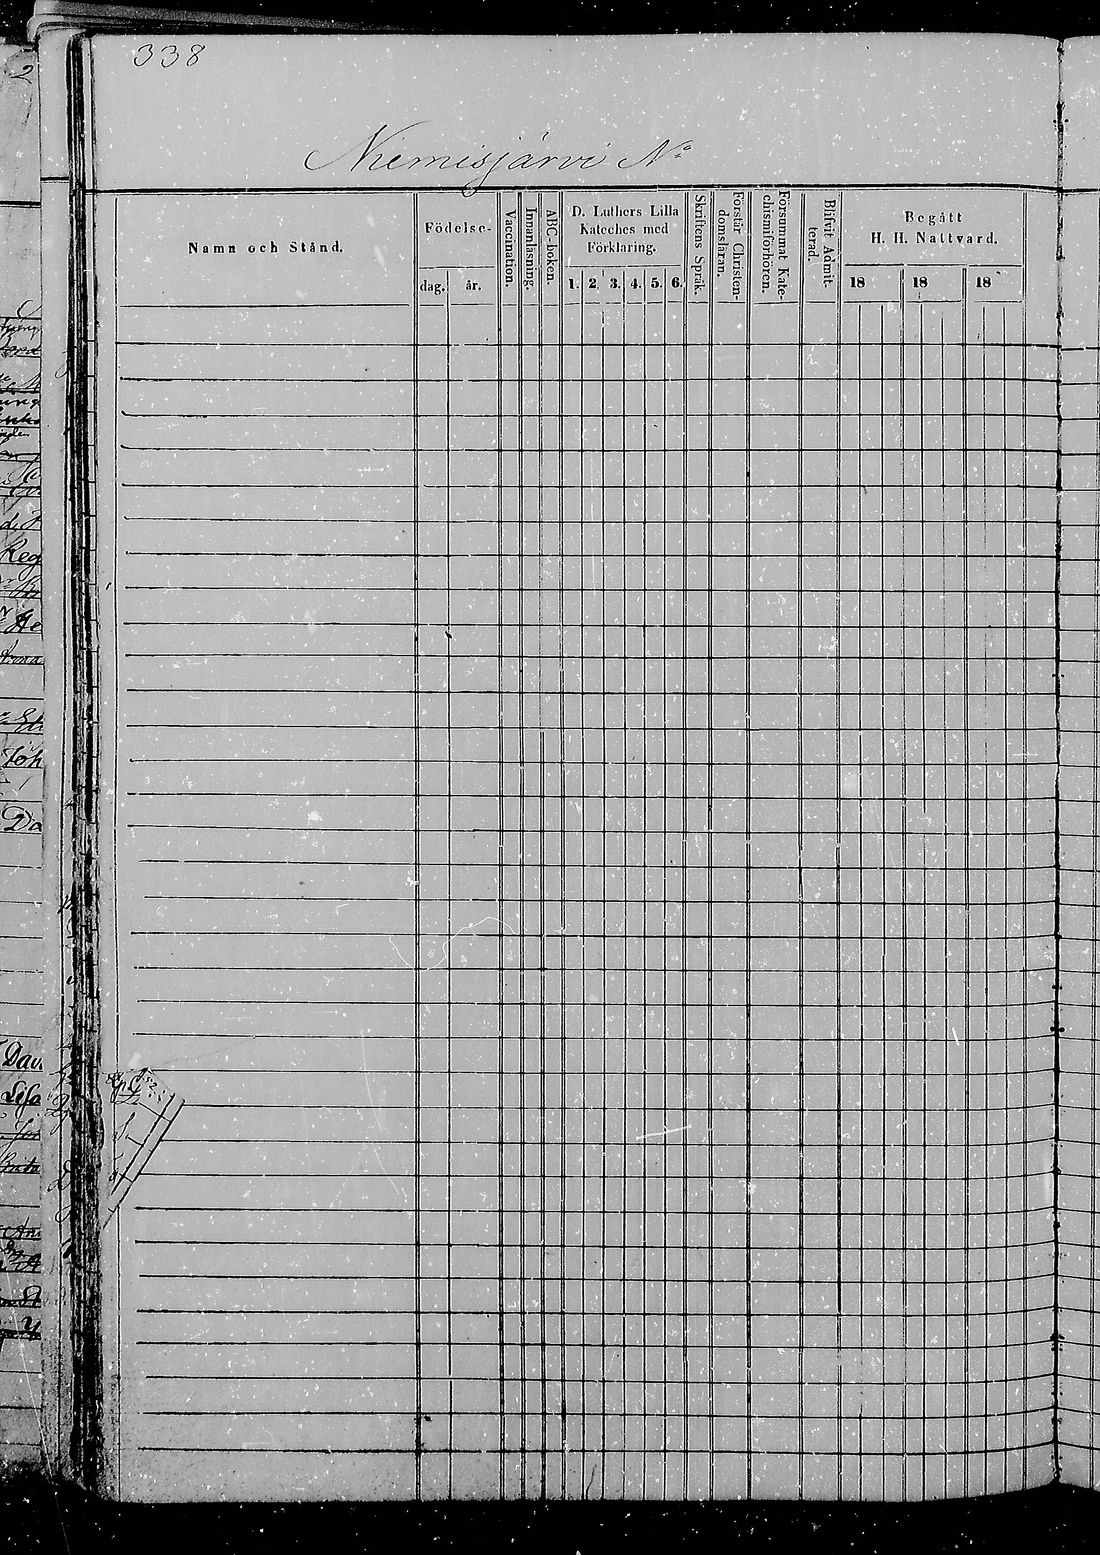 338
Niemisjärvi No
Namn och Stånd.
Födelse-
dag. år.
Vaccination.
Innanläsning.
ABC-boken.
D. Luthers Lilla
Kateches med
Förklaring.
1. 2. 3. 4. 5. 6.
Skriftens Språk.
Förstår Christen-
domsläran.
Försummat Kate-
chismiförhören.
Blifvit Admit-
terad.
Begått
H. H. Nattvard.
18 18 18
Reg
Joh
Da
Dav
Lisa